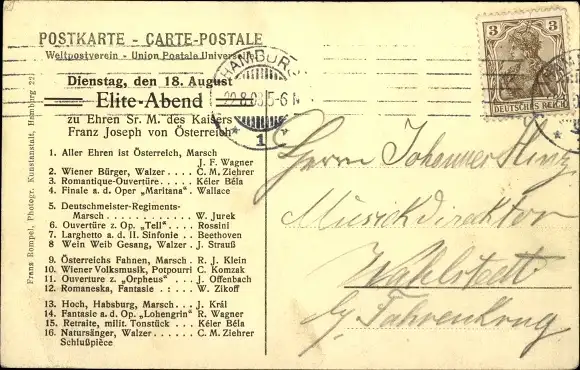 POSTKARTE – CARTE-POSTALE
Weltpostverein - Union Postale Universelle
Dienstag, den 18. August
Elite-Abend
zu Ehren Sr. M. des Kaisers
Franz Joseph von Österreich
1. Aller Ehren ist Österreich, Marsch
J. F. Wagner
2. Wiener Bürger, Walzer . . . . C. M. Ziehrer
3. Romantique-Ouvertüre . . . . . Kéler Béla
4. Finale a. d. Oper „Maritana" . Wallace
5. Deutschmeister-Regiments-
Marsch . . . . . . . . . . . . W. Jurek
6. Ouvertüre z. Op. „Tell" . . . . Rossini
7. Larghetto a. d. II. Sinfonie . . Beethoven
8 Wein Weib Gesang, Walzer . J. Strauß
9. Österreichs Fahnen, Marsch . R. J. Klein
10. Wiener Volksmusik, Potpourri C. Komzak
11. Ouverture z. „Orpheus" . . J. Offenbach
12. Romaneska, Fantasie . : . . . W. Zikoff
13. Hoch, Habsburg, Marsch . . . J. Král
14. Fantasie a. d. Op. „Lohengrin" R. Wagner
15. Retraite, milit. Tonstück . . . Kéler Béla
16. Natursänger, Walzer . . . . . C. M. Ziehrer
Schlußpièce
Franz Rompel, Photogr. Kunstanstalt, Hamburg 22
HAMBURG
22.8.08.5-6 N
* 1 *
3 3
DEUTSCHES REICH
Herrn Johannes
Musikdirektor
Wahlstedt
by Fahrenkrug